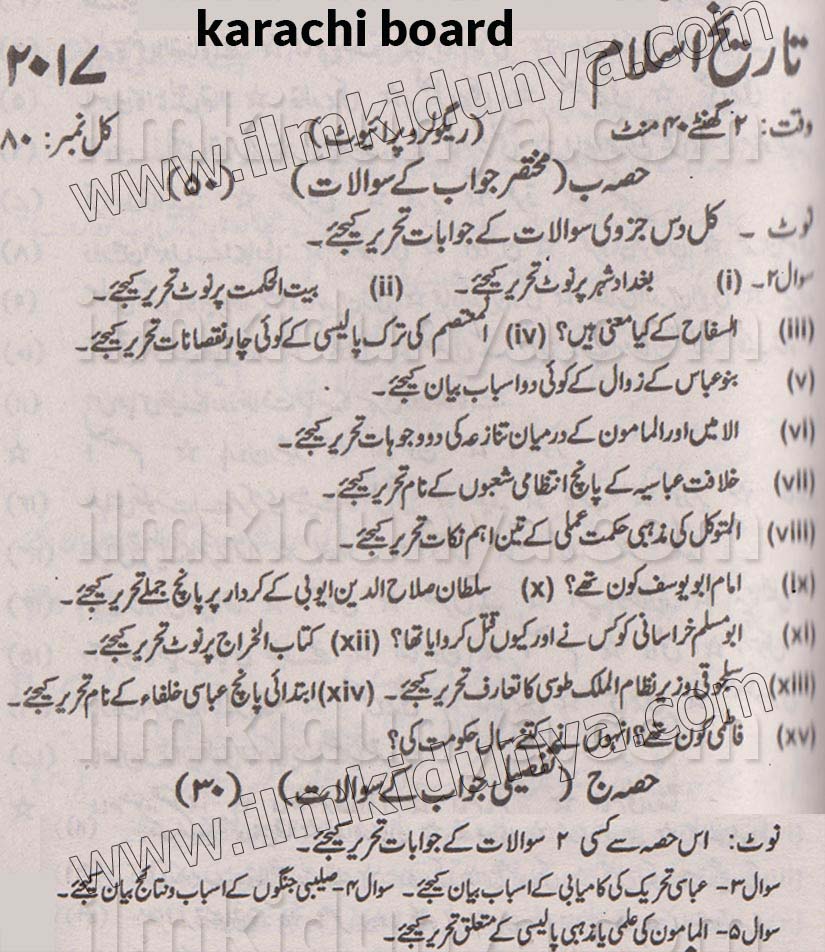 karachi board
تاریخ اسلام ۲۰۱۷
وقت: ۲ گھنٹے ۴۰ منٹ (ریگولر و پرائیوٹ) کل نمبر: ۸۰
حصہ ب (مختصر جواب کے سوالات) (۵۰)
نوٹ ۔ کل دس جزوی سوالات کے جوابات تحریر کیجئے۔
سوال ۲۔ (i) بغداد شہر پر نوٹ تحریر کیجئے۔ (ii) بیت الحکمت پر نوٹ تحریر کیجئے۔
(iii) السفاح کے کیا معنی ہیں؟ (iv) المعتصم کی ترک پالیسی کے کوئی چار نقصانات تحریر کیجئے۔
(v) بنو عباس کے زوال کے کوئی دو اسباب بیان کیجئے۔
(vi) الامین اور المامون کے درمیان تنازعہ کی دو وجوہات تحریر کیجئے۔
(vii) خلافت عباسیہ کے پانچ انتظامی شعبوں کے نام تحریر کیجئے۔
(viii) المتوکل کی مذہبی حکمت عملی کے تین اہم نکات تحریر کیجئے۔
(ix) امام ابو یوسف کون تھے؟ (x) سلطان صلاح الدین ایوبی کے کردار پر پانچ جملے تحریر کیجئے۔
(xi) ابو مسلم خراسانی کو کس نے اور کیوں قتل کروایا تھا؟ (xii) کتاب الخراج پر نوٹ تحریر کیجئے۔
(xiii) سلجوقی وزیر نظام الملک طوسی کا تعارف تحریر کیجئے۔ (xiv) ابتدائی پانچ عباسی خلفاء کے نام تحریر کیجئے۔
(xv) فاطمی کون تھے؟ انہوں نے کتنے سال حکومت کی؟
حصہ ج (تفصیلی جواب کے سوالات) (۳۰)
نوٹ: اس حصہ سے کسی ۲ سوالات کے جوابات تحریر کیجئے۔
سوال ۳- عباسی تحریک کی کامیابی کے اسباب بیان کیجئے۔ سوال ۴- صلیبی جنگوں کے اسباب و نتائج بیان کیجئے۔
سوال ۵- المامون کی علمی یا مذہبی پالیسی کے متعلق تحریر کیجئے۔
www.ilmkidunya.com
www.ilmkidunya.com
www.ilmkidunya.com
ilmkidunya.com
ilmkidunya.com
ilmkidunya.com
ilmkidunya.com